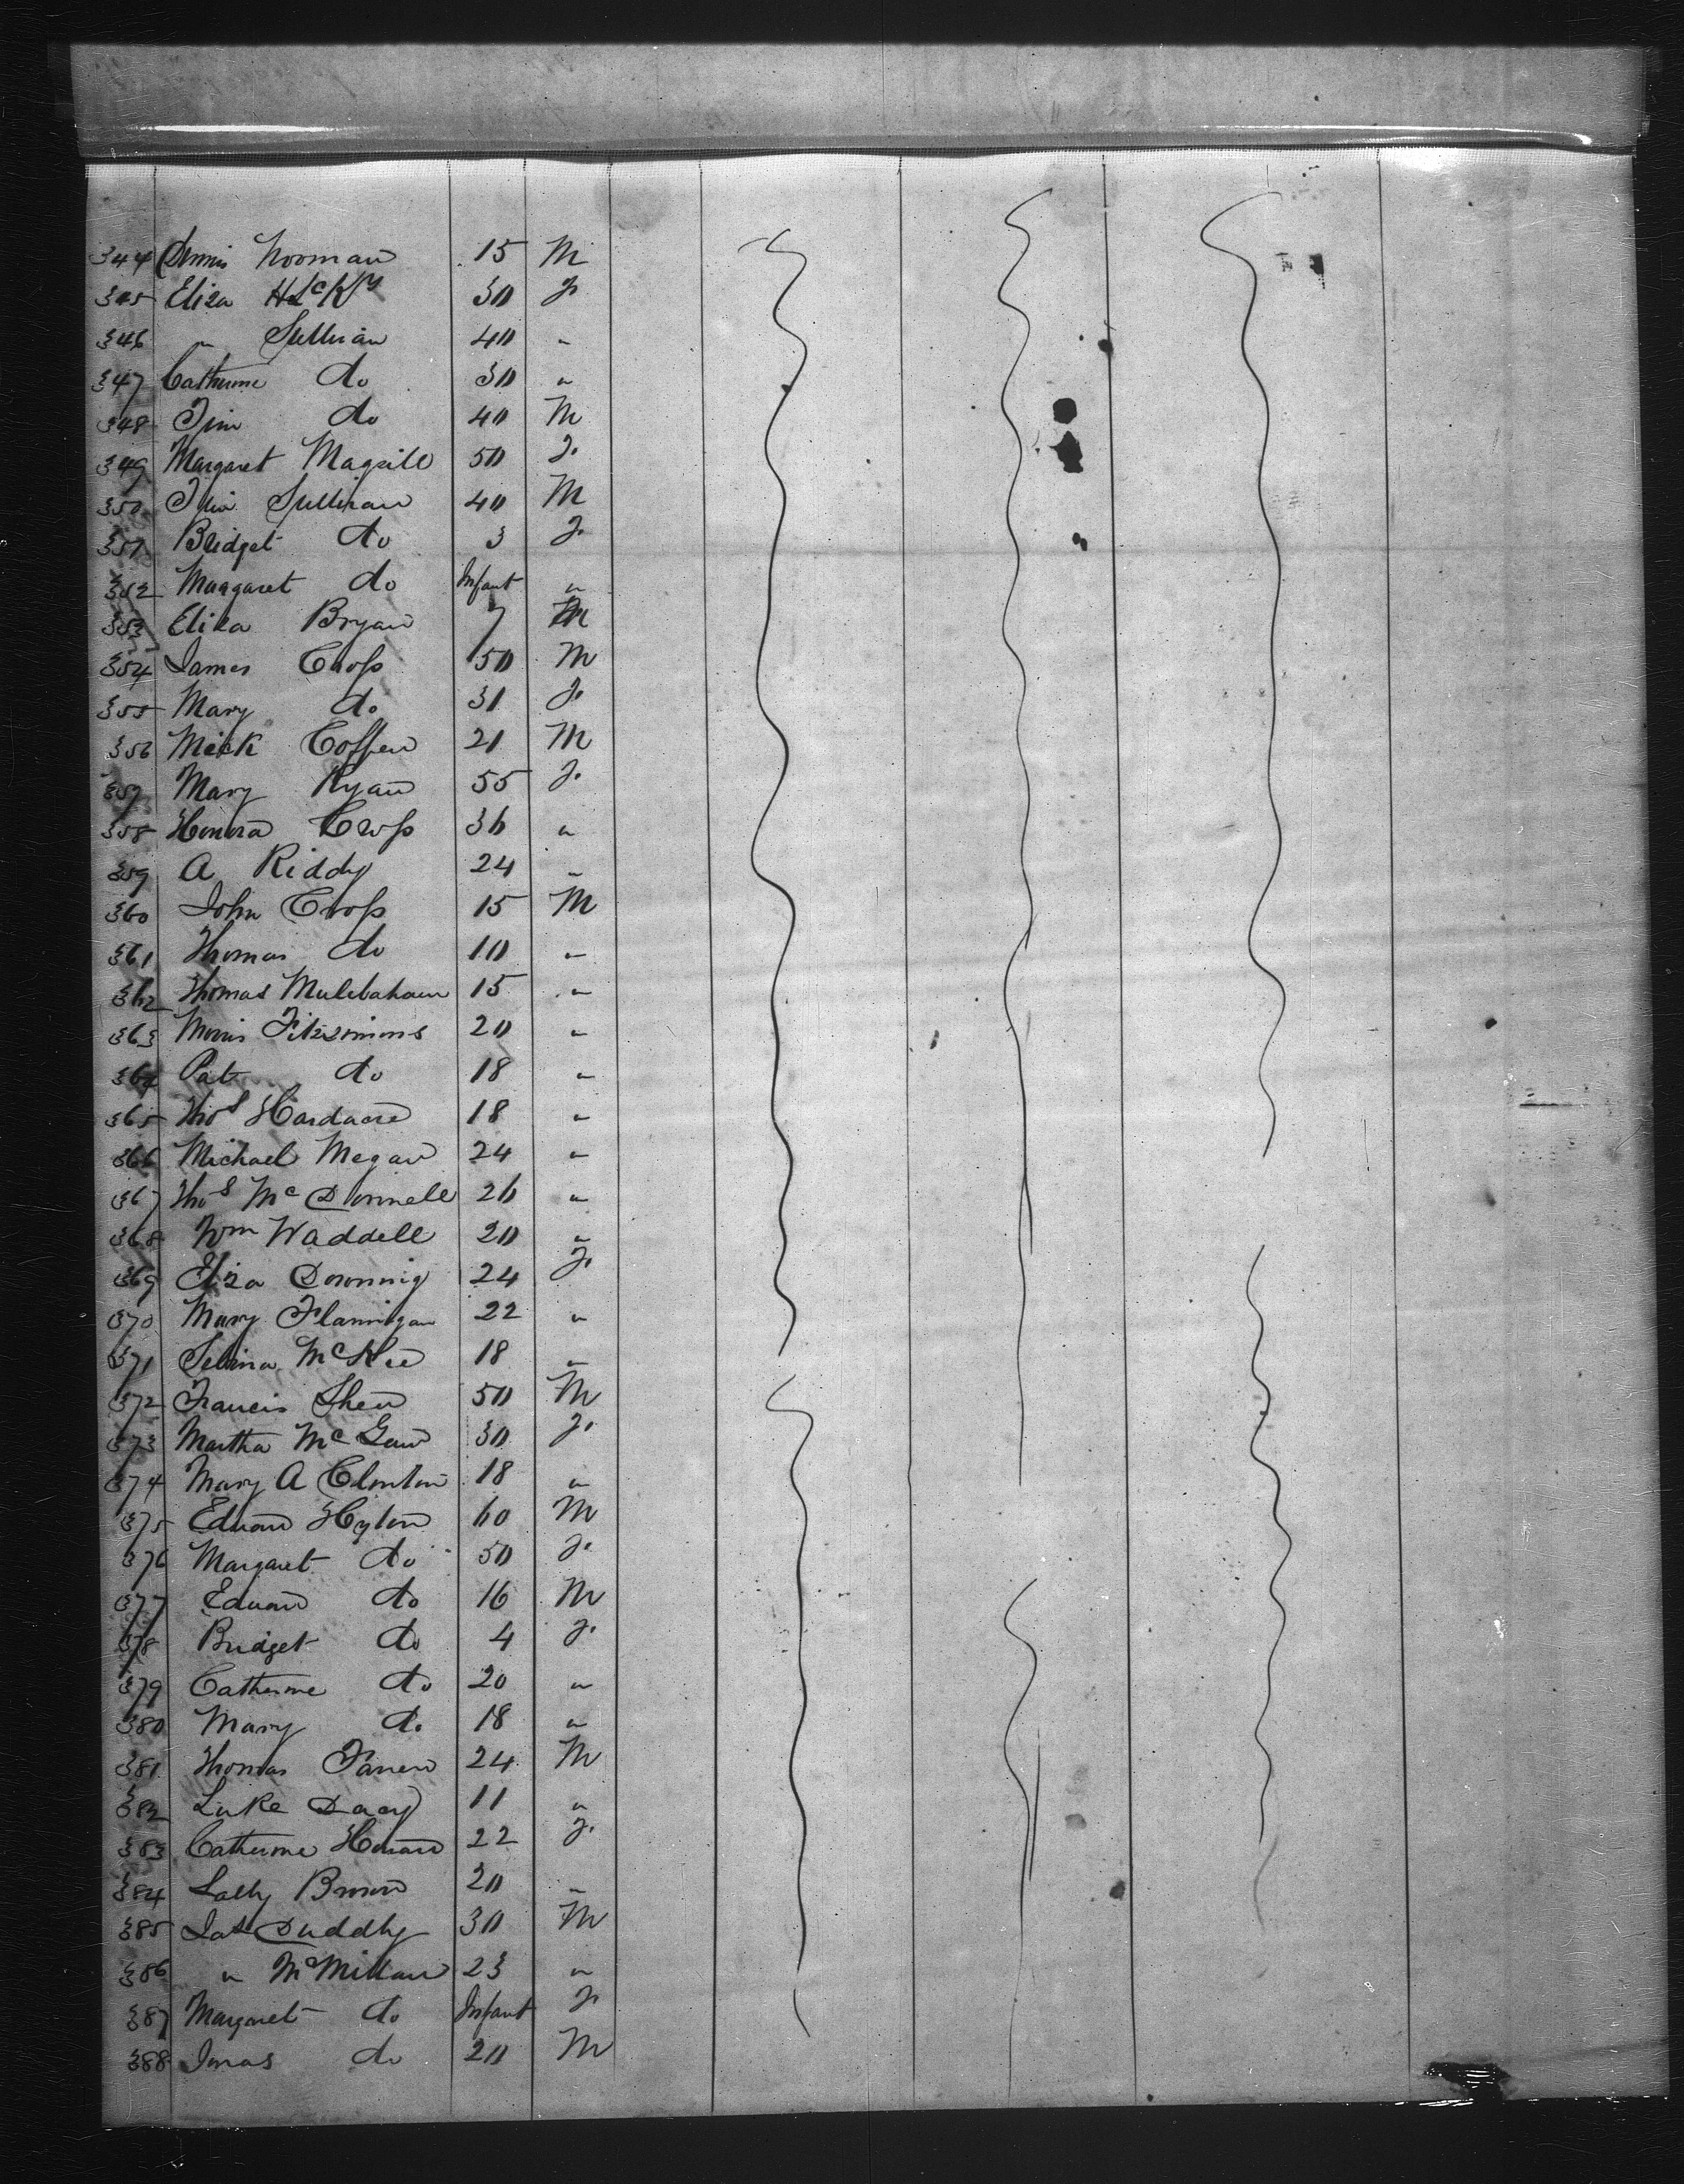 344 Dennis Noonan 15 M
345 Eliza 30 F
346 " Sullivan 40 "
347 Catherine do 30 "
348 Tim do 40 M
349 Margaret Magill 50 F.
350 Sullivan 40 M
351 Bridget do 3 F.
352 Margaret do Infant "
353 Eliza Bryan 7
354 James Cross 50 M
355 Mary do 31 F.
356 Mick Coffen 21 M
357 Mary Ryan 55 F.
358 Honora Cross 36 "
359 A Riddy 24 "
360 John Cross 15 M
361 Thomas do 10 "
362 Thomas 15 "
363 Morris Fitzsimins 20 "
364 Pat do 18 "
365 Thos Hardacre 18 "
366 Michael Megan 24 "
367 Thos Mc Donnell 26 "
368 Wm Waddell 20 "
369 Eliza Downing 24 F.
370 Mary Flannigan 22 "
371 Selina McKee 18 "
372 Francis Shea 50 M
373 Martha Mc Gaw 30 F.
374 Mary A Clinton 18 "
375 Edward Hylon 60 M
376 Margaret do 50 F.
377 Edward do 16 M
378 Bridget do 4 F.
379 Catherine do 20 "
380 Mary do 18 "
381 Thomas Farren 24 M
382 Luke Dacy 11 "
383 Catherine Howard 22 F.
384 Sally Brown 20 "
385 Jas Duddly 30 M
386 " McMillan 23 "
387 Margaret do Infant F
388 do 20 M